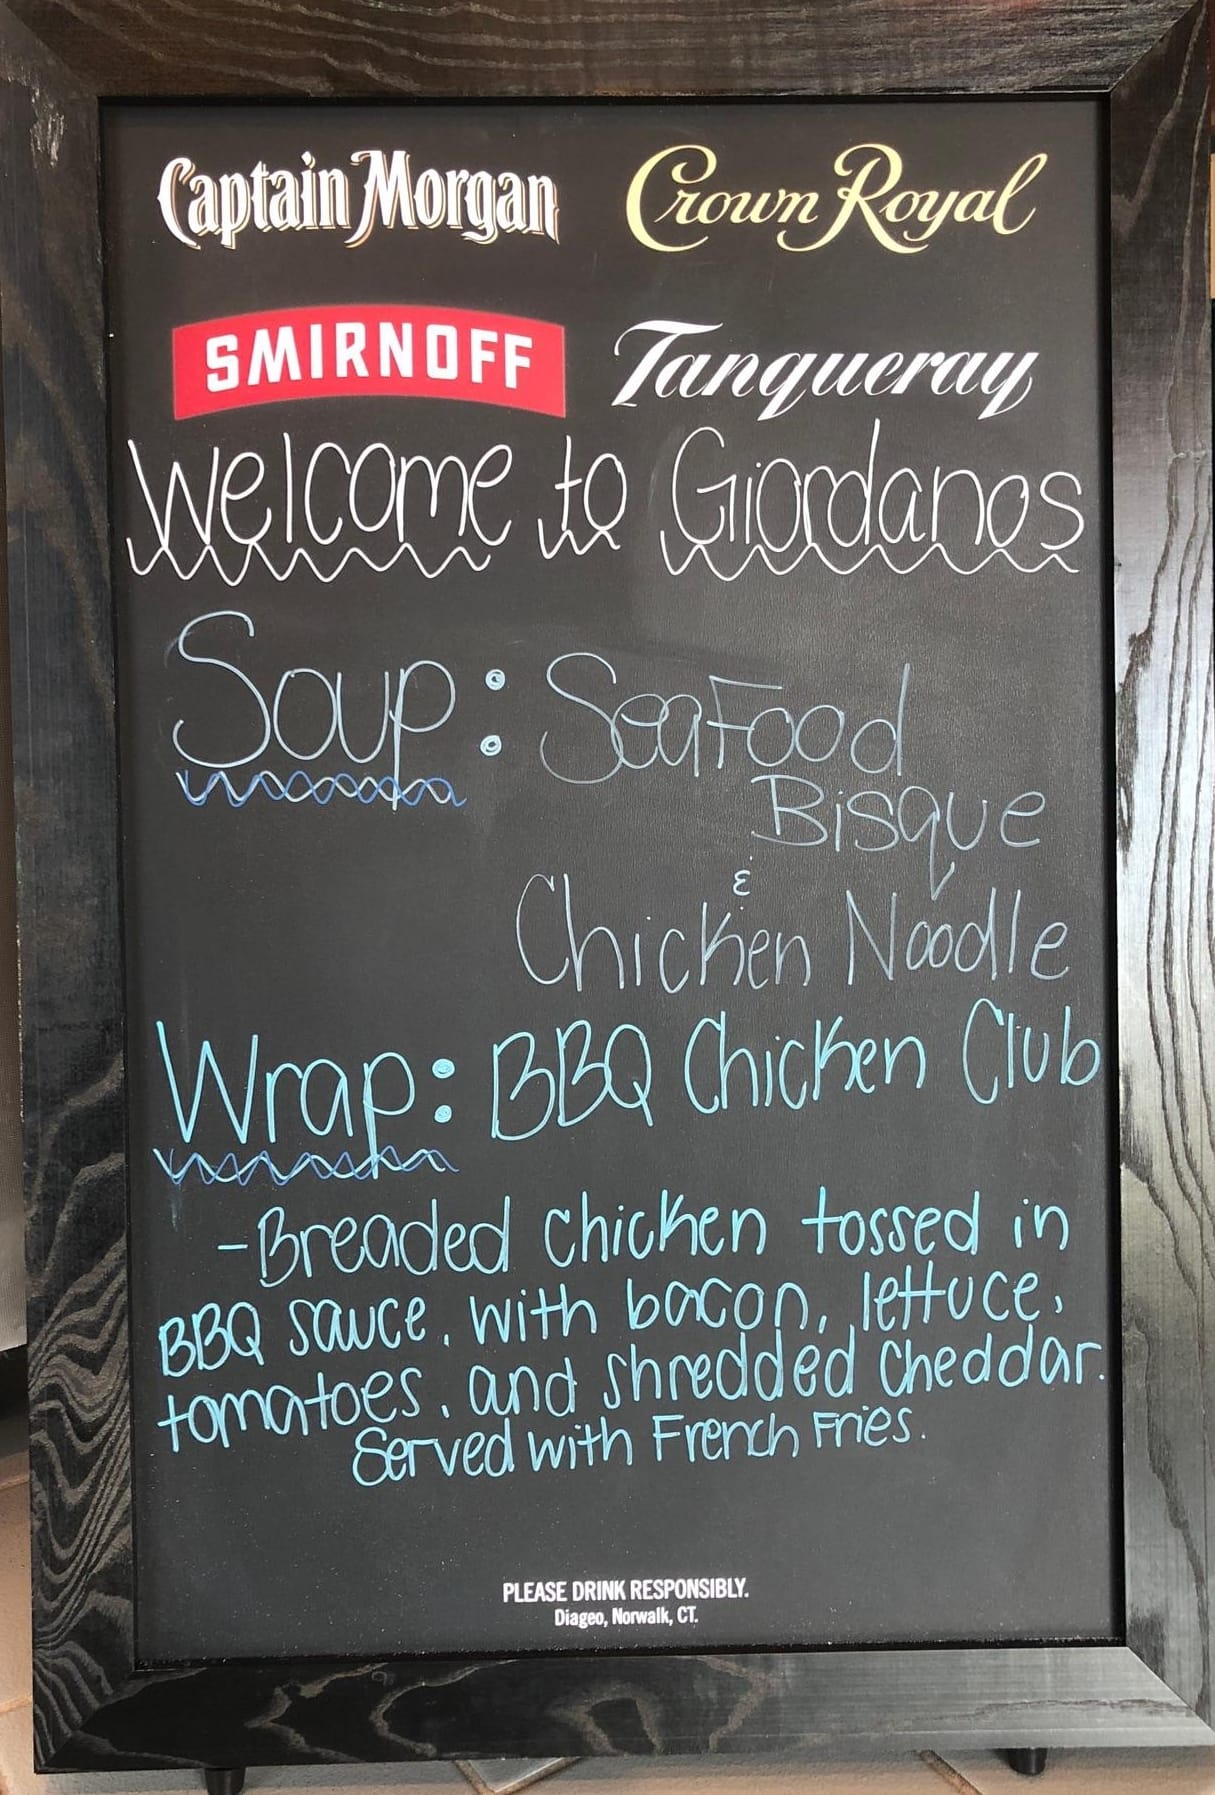 Captain Morgan Crown Royal
SMIRNOFF Tanqueray
Welcome to Giordanos
Soup: SeaFood
Bisque
&
Chicken Noodle
Wrap: BBQ Chicken Club
-Breaded chicken tossed in
BBQ sauce, with bacon, lettuce,
tomatoes, and shredded cheddar.
Served with French Fries.
PLEASE DRINK RESPONSIBLY.
Diageo, Norwalk, CT.